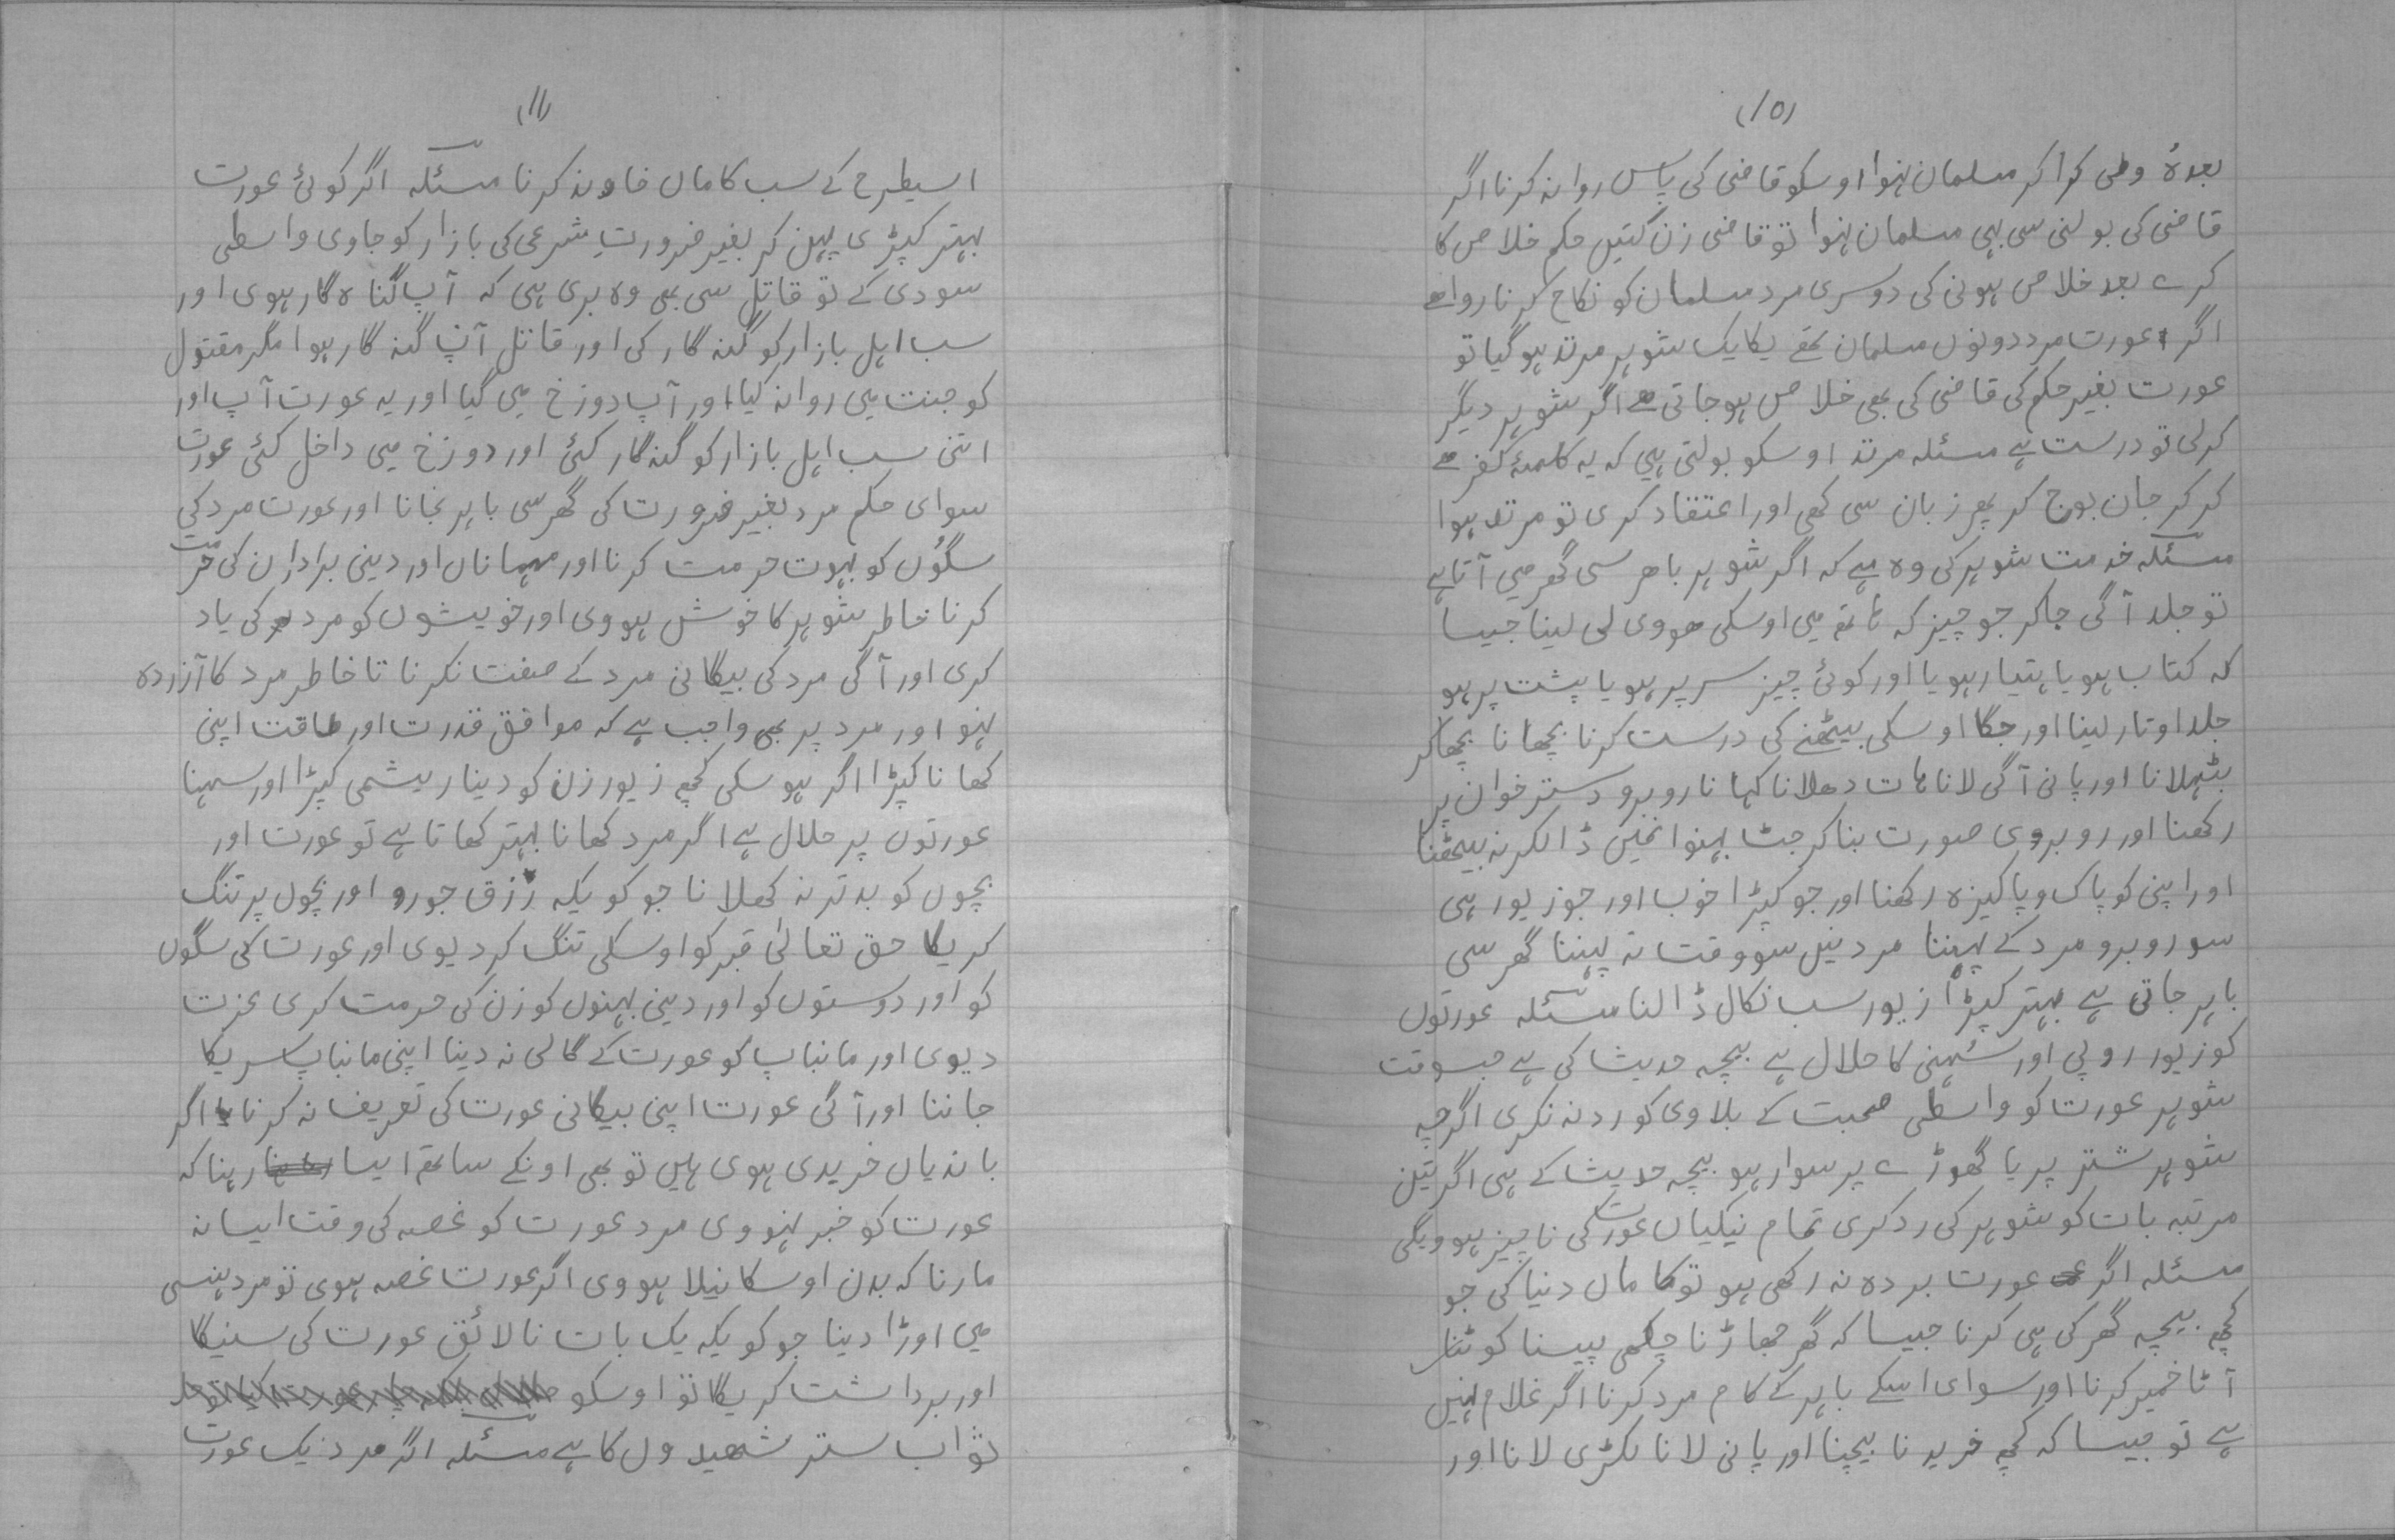 (۱۰)
بعدہٗ وطی کرا کر مسلمان نہوا اوسکو قاضی کی پاس روانہ کرنا اگر
قاضی کی بولنی سی بہی مسلمان نہوا تو قاضی زن کتیں حکم خلاص کا
کرے بعد خلاص ہونی کی دوسری مرد مسلمان کو نکاح کرنا روا ہے
اگر عورت مرد دونوں مسلمان تھے یکایک شوہر مرتد ہو گیا تو
عورت بغیر حکم کی قاضی کی بھی خلاص ہو جاتی ہے اگر شوہر دیگر
کرلی تو درست ہے مسئلہ مرتد اوسکو بولتی ہیں کہ یہ کلمۂ کفر ہے
کر کر جان بوج کر پھر زبان سی کھی اور اعتقاد کری تو مرتد ہوا
مسئلہ خدمت شوہر کی وہ ہے کہ اگر شوہر باھر سی گھر میں آتا ہے
تو جلد آگی جاکر جو چیز کہ ہاتھ میں اوسکی ھووی لی لینا جیسا
کہ کتاب ہو یا ہتیار ہو یا اور کوئی چیز سر پر ہو یا پشت پر ہو
جلد اوتار لینا اور جگا اوسکی بیٹھنے کی درست کرنا بچھانا بچھا کر
بٹہلانا اور پانی آگی لانا ہات دھلانا کہانا روبرو دستر خوان پر
رکھنا اور روبروی صورت بنا کر جٹ بہنوا نمیں ڈالکر نہ بیٹھنا
اور اپنی کو پاک و پاکیزہ رکھنا اور جو کپڑا خوب اور جو زیور ہی
سو روبرو مرد کے پہننا مرد نیں سو وقت نہ پہننا گھر سی
باہر جاتی ہے بہتر کپڑا زیور سب نکال ڈالنا مسئلہ عورتوں
کو زیور روپی اور سنہنی کا حلال ہے بیچہ حدیث کی ہے جسوقت
شوہر عورت کو واسطی صحبت کے بلاوی کو رد نہ نکری اگرچہ
شوہر شتر پر یا گھوڑے پر سوار ہو بیچہ حدیث کے ہی اگر تین
مرتبہ بات کو شوہر کی رد کری تمام نیکیاں عورت کی ناچیز ہوویگی
مسئلہ اگر عورت بردہ نہ رکھی ہو تو کاماں دنیا کی جو
کچھ بیچہ گھر کی ہی کرنا جیسا کہ گھر جھاڑنا چکھی پیسنا کوٹنا
آٹا خمیر کرنا اور سوای اسکے باہر کے کام مرد کرنا اگر غلام نہیں
ہے تو جیسا کہ کچھ خریدنا بیچنا اور پانی لانا لکڑی لانا اور
(۱۱)
اسیطرح کے سب کاماں خاوند کرنا مسئلہ اگر کوئی عورت
بہتر کپڑی پہن کر بغیر ضرورتِ شرعی کی بازار کو جاوی واسطی
سودی کے تو قاتل سی بھی وہ بری ہی کہ آپ گناہ گار ہوی اور
سب اہل بازار کو گنہ گار کی اور قاتل آپ گنہ گار ہوا مگر مقتول
کو جنت میں روانہ کیا اور آپ دوزخ میں گیا اور یہ عورت آپ اور
اتنی سب اہل بازار کو گنہگار کئی اور دوزخ میں داخل کئی عورت
سوای حکم مرد بغیر ضرورت کی گھر سی باہر نجانا اور عورت مرد کی
سگوں کو بہوت حرمت کرنا اور مہماناں اور دینی برادران کی حرمت
کرنا خاطر شوہر کا خوش ہووی اور خویشوں کو مرد کی یاد
کری اور آگی مرد کی بیگانی مرد کے صفت نکرنا تا خاطر مرد کا آزردہ
نہو اور مرد پر بھی واجب ہے کہ موافق قدرت اور طاقت اپنی
کھانا کپڑا اگر ہو سکی کچھ زیور زن کو دینا ریشمی کپڑا اور سہنا
عورتوں پر حلال ہے اگر مرد کھانا بہتر کھاتا ہے تو عورت اور
بچوں کو بدتر نہ کھلانا جو کویکہ رزق جورو اور بچوں پر تنگ
کریگا حق تعالیٰ قبر کو اوسکی تنگ کر دیوی اور عورت کی سگوں
کو اور دوستوں کو اور دینی بہنوں کو زن کی حرمت کری عزت
دیوی اور مانباپ کو عورت کے گالی نہ دینا اپنی مانباپ سریکا
جاننا اور آگی عورت اپنی بیگانی عورت کی تعریف نہ کرنا اگر
باندیاں خریدی ہوی ہیں تو بھی اونکے ساتھ ایسا رہنا کہ
عورت کو خبر نہووی مرد عورت کو غصہ کی وقت ایسا نہ
مارنا کہ بدن اوسکا نیلا ہووی اگر عورت غصہ ہوی تو مرد ہنسی
میں اوڑا دینا جو کویکہ یک بات نالائق عورت کی سنیگا
اور برداشت کریگا تو اوسکو
ثواب ستر شھیدوں کا ہے مسئلہ اگر مرد یک عورت